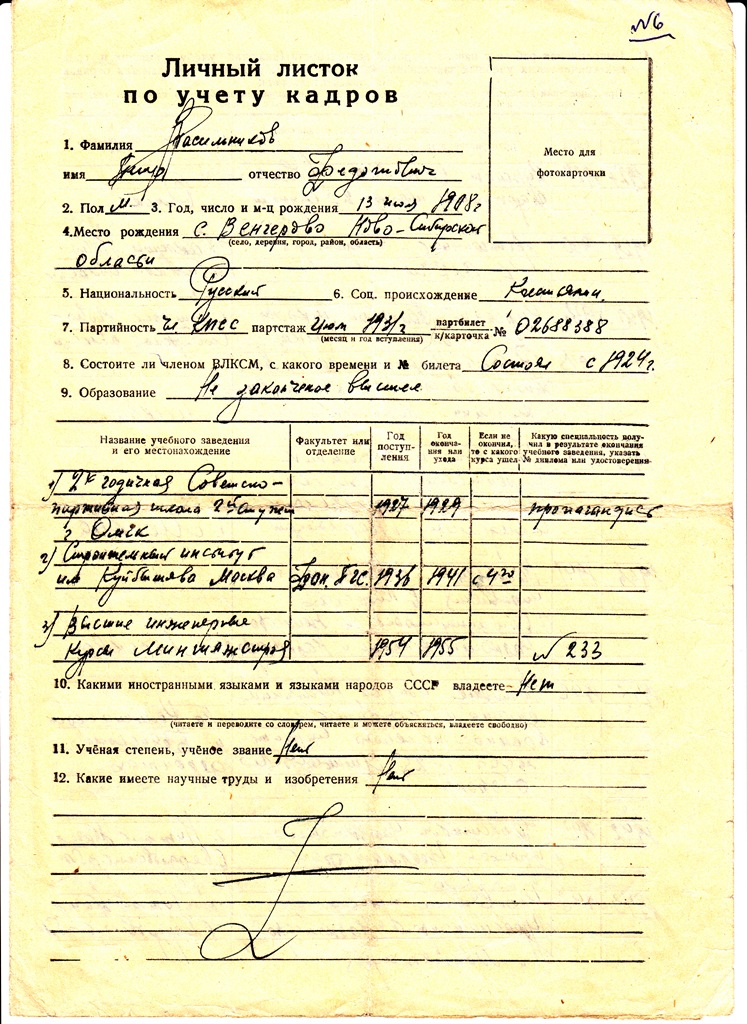 №6
Личный листок
по учету кадров
Место для
фотокарточки
1. Фамилия Красильников
имя отчество Федотович
2. Пол М. 3. Год, число и м-ц рождения 13 июля 1908 г
4. Место рождения с. Венгерово Ново-Сибирской
(село, деревня, город, район, область)
области
5. Национальность Русский 6. Соц. происхождение
7. Партийность чл КПСС партстаж июль 1931 г партбилет № 02688388
(месяц и год вступления) к/карточка
8. Состоите ли членом ВЛКСМ, с какого времени и № билета Состоял с 1924 г.
9. Образование Не законченое высшее
Название учебного заведения и его местонахождение
Факультет или отделение
Год поступления
Год окончания или ухода
Если не окончил, то с какого курса ушел
Какую специальность получил в результате окончания учебного заведения, указать № диплома или удостоверения
1) 2х годичная Советско-
партийная школа 2й ступени 1927 1929 пропагандист
г Омск
2) Строительный институт
им Куйбышева Москва 1936 1941 с 4го
3) Высшие инженерные
курсы Минтяжстроя 1954 1955 № 233
10. Какими иностранными языками и языками народов СССР владеете Нет
(читаете и переводите со словарем, читаете и можете объясняться, владеете свободно)
11. Учёная степень, учёное звание Нет
12. Какие имеете научные труды и изобретения Нет